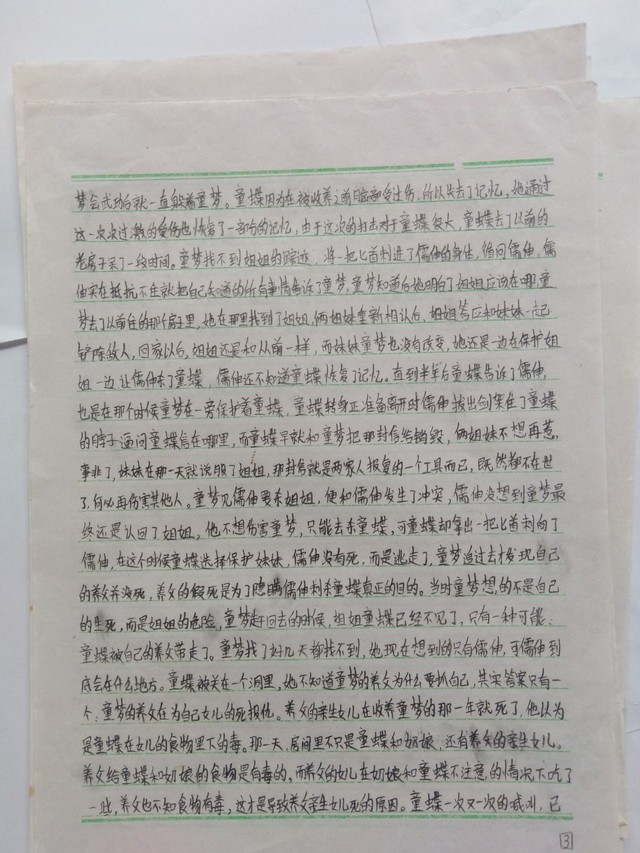 梦会武功后就一直躲着童梦。童蝶因为在被收养之前脑部受过伤,所以失去了记忆,她通过
这一次次过激的受伤也恢复了一部分的记忆,由于这次的打击对于童蝶复大,童蝶去了以前的
老房子呆了一段时间。童梦找不到姐姐的踪迹,将一把匕首刺进了儒伸的身体,循问儒伸,儒
伸实在抵抗不住就把自己知道的所有事情告诉了童梦,童梦知道后她明白了姐姐应该在哪,童
梦去了以前住的那个房子里,她在那里找到了姐姐,俩姐妹重新相认后,姐姐答应和妹妹一起
铲除敌人,回家以后,姐姐还是和从前一样,而妹妹童梦也没有改变,她还是一边在保护姐
姐一边让儒伸杀了童蝶,儒伸还不知道童蝶恢复了记忆。直到半年后童蝶告诉了儒伸,
也是在那个时候童梦在一旁保护着童蝶,童蝶转身正准备离开时儒伸拔出剑架住了童蝶
的脖子逼问童蝶信在哪里,而童蝶早就和童梦把那封信给销毁,俩姐妹不想再惹
事非了,妹妹在那一天就说服了姐姐,那封信就是两家人报复的一个工具而已,既然都不在世
了,何必再伤害其他人。童梦见儒伸要杀姐姐,便和儒伸发生了冲突,儒伸没想到童梦最
终还是认回了姐姐。他不想伤害童梦,只能去杀童蝶,可童蝶却拿出一把匕首刺向了
儒伸,在这个时候童蝶选择保护妹妹,儒伸没有死,而是逃走了,童梦追过去才发现自己
的养父并没死,养父的假死是为了隐瞒儒伸刺杀童蝶真正的目的。当时童梦想的不是自己
的生死,而是姐姐的危险,童梦赶回去的时候,姐姐童蝶已经不见了,只有一种可能:
童蝶被自己的养父带走了。童梦找了好几天都找不到,她现在想到的只有儒伸,可儒伸到
底会在什么地方。童蝶被关在一个洞里,她不知道童梦的养父为什么要抓自己,其实答案只有一
个:童梦的养父在为自己女儿的死报仇。养父的亲生女儿在收养童梦的那一年就死了,他认为
是童蝶在女儿的食物里下的毒。那一天,房间里不只是童蝶和奶娘,还有养父的亲生女儿。
养父给童蝶和奶娘的食物是有毒的,而养父的女儿在奶娘和童蝶不注意的情况下吃了
一些,养父也不知食物有毒,这才是导致养父亲生女儿死的原因。童蝶一次又一次的威刂,已
3